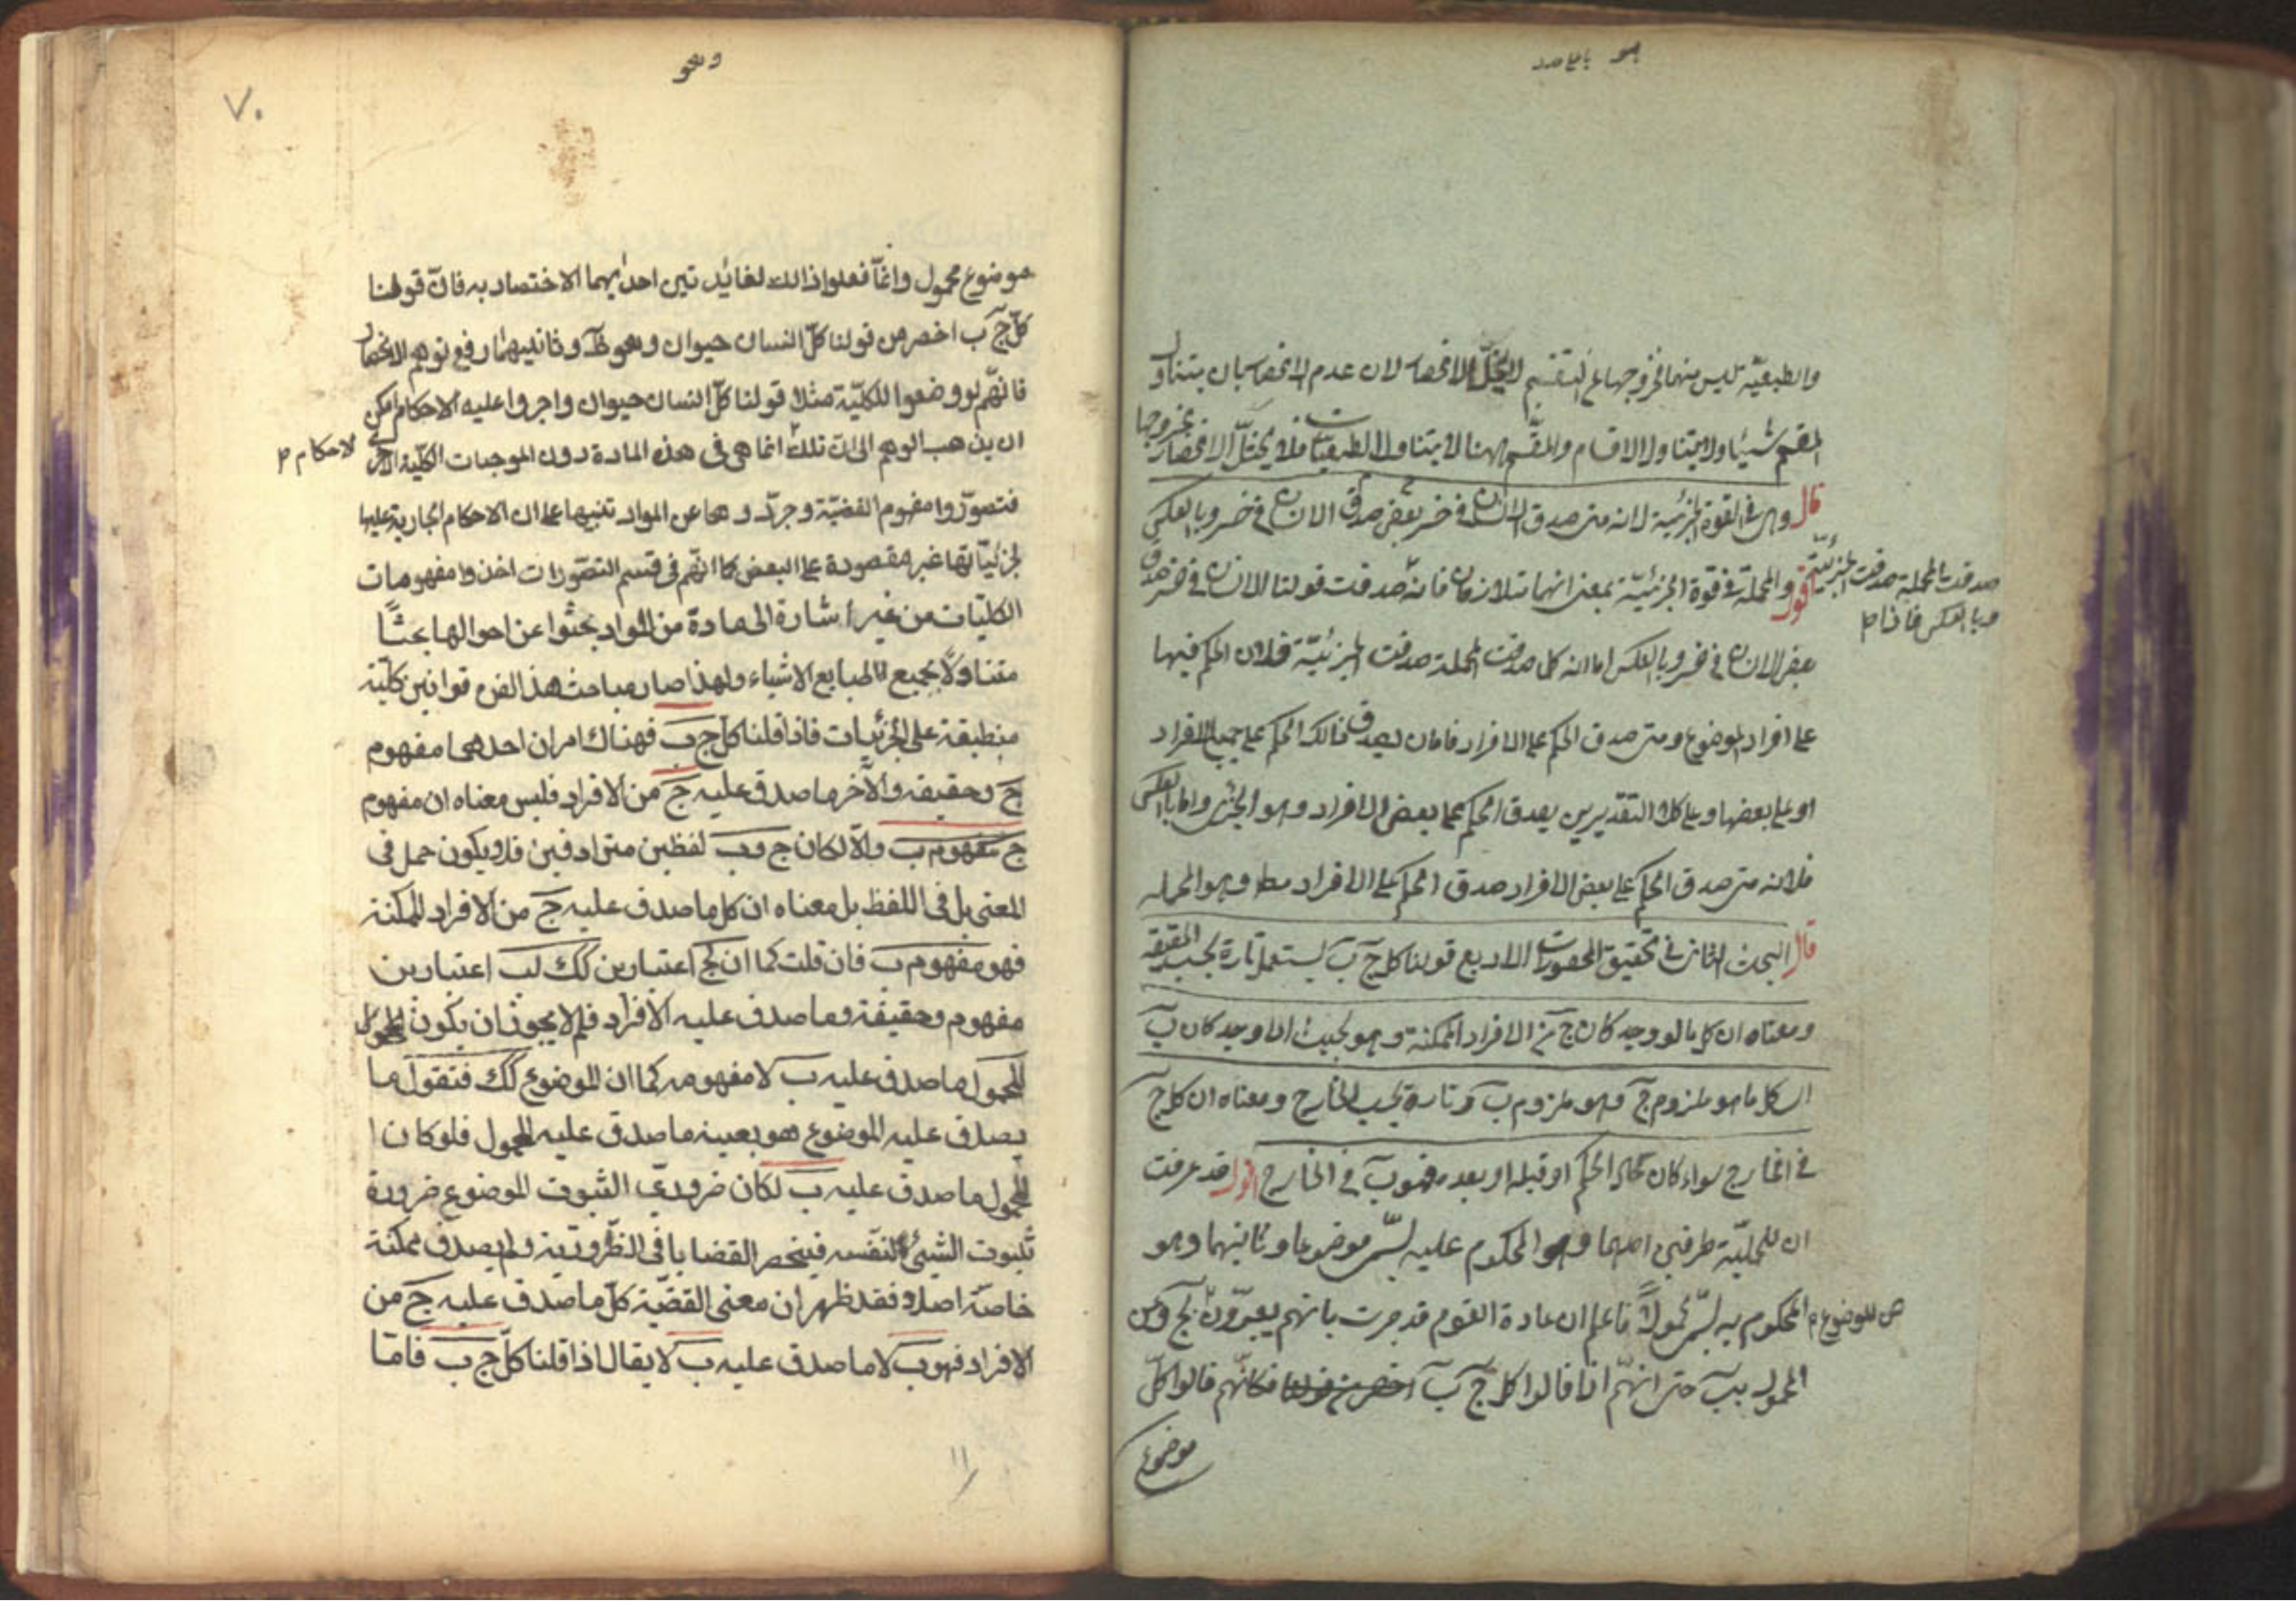 هو
والطبيعيّة ليس منها فخروجها عن التقسيم لا يخلّ الانحصار لان عدم الانحصار بان يتناول
المقسم شيئا ولا يتناوله الاقسام والمقسم ههنا لا يتناول الطبيعيات فلا يختلّ الانحصار بخروجها
قال وهى فى القوة الجزئية لانه متى صدق الانسان فى خسر صدق بعض الانسان فى خسر وبالعكس
اقول والمهملة فى قوة الجزئيّة بمعنى انهما متلازمان فانه صدقت قولنا الانسان فى خسر صدق
صدقت المهملة صدقت الجزئيّة
وبالعكس فاذا م
بعض الانسان فى خسر وبالعكس اما انه كل صدقت المهملة صدقت الجزئيّة فلان الحكم فيها
على افراد الموضوع ومتى صدق الحكم على الافراد فاما ان يصدق ذالك الحكم على جميع الافراد
او على بعضها وعلى كلا التقديرين يصدق الحكم على بعض الافراد وهو الجزئى واما بالعكس
فلانه متى صدق الحكم على بعض الافراد صدق الحكم على الافراد مط وهو المهمله
قال البحث الثانى فى تحقيق المحصورات الاربع قولنا كل ج ب يستعمل تارة بحسب الحقيقة
ومعناه ان كل ما لو وجد كان ج من الافراد الممكنة وهو بحيث اذا وجد كان ب
اى كل ما هو ملزوم ج وهو ملزوم ب وتارة بحسب الخارج ومعناه ان كل ج
فى الخارج سواء كان حال الحكم او قبله او بعده فهو ب فى الخارج اقول قد عرفت
ان للحمليّة طرفين احدهما وهو المحكوم عليه يسمّى موضوعا وثانيهما وهو
المحكوم به يسمّى محمولاً فاعلم ان عادة القوم قد جرت بانهم يعبّرون بج وعن
عن الموضوع م
المحمول بب حتى انهّم اذا قالوا كل ج ب اخصر من قولنا فكانّهم قالوا كلّ
موضوع
وهو
٧٠
موضوع محمول وانمّا فعلوا ذالك لفائدتين احدٰيهما الاختصار به فانّ قولنا
كلّ ج ب اخصر من قولنا كلّ انسان حيوان وهو ظ وثانيهما رفع توهم الانحصار
فانّهم لو وضعوا للكليّة مثلا قولنا كلّ انسان حيوان واجروا عليه الاحكام امكن
ان يذهب الوهم الى ان تلك انما هى فى هذه المادة دون الموجبات الكليّة الاخر
الاحكام م
فتصوّروا مفهوم القضيّة وجرّدوها عن المواد تنبيها على ان الاحكام الجارية عليها
لجزئيّاتها غير مقصودة على البعض كما انّهم فى قسم التصّورات اخذوا مفهومات
الكليّات من غير أشارة الى مادة من المواد بحثوا عن احوالها بحثاً
متناولاً بجميع طبايع الاشياء ولهذا صار مباحث هذ الفن قوانين كليّة
منطبقة على الجزئيات فاذا قلنا كل ج ب فهناك امران احدهما مفهوم
ج وحقيقه والآخر ما صدق عليه ج من الافراد فليس معناه ان مفهوم
ج مفهوم ب والّا لكان ج وب لفظين مترادفين فلا يكون حمل فى
المعنى بل فى اللفظ بل معناه ان كل ما صدق عليه ج من الافراد الممكنة
فهو مفهوم ب فان قلت كما ان لج اعتبارين كك لب اعتبارين
مفهوم وحقيقة وما صدق عليه الافراد فلم لا يجوز ان يكون المحول
المحمول ما صدق عليه ب لا مفهومه كما ان الموضوع كك فتقول ما
يصدق عليه الموضوع هو بعينه ما صدق عليه المحمول فلو كان ا
لمحمول ما صدق عليه ب لكان ضرورىّ الثبوت الموضوع ضرورة
ثبوت الشيئ لنفسه فينحصر القضايا فى الضّروريّة ولم يصدق ممكنة
خاصّة اصلا فقد ظهر ان معنى القضيّة كلّ ما صدق عليه ج من
الافراد فهو ب لا ما صدق عليه ب لا يقال اذا قلنا كلّ ج ب فامّا
١١